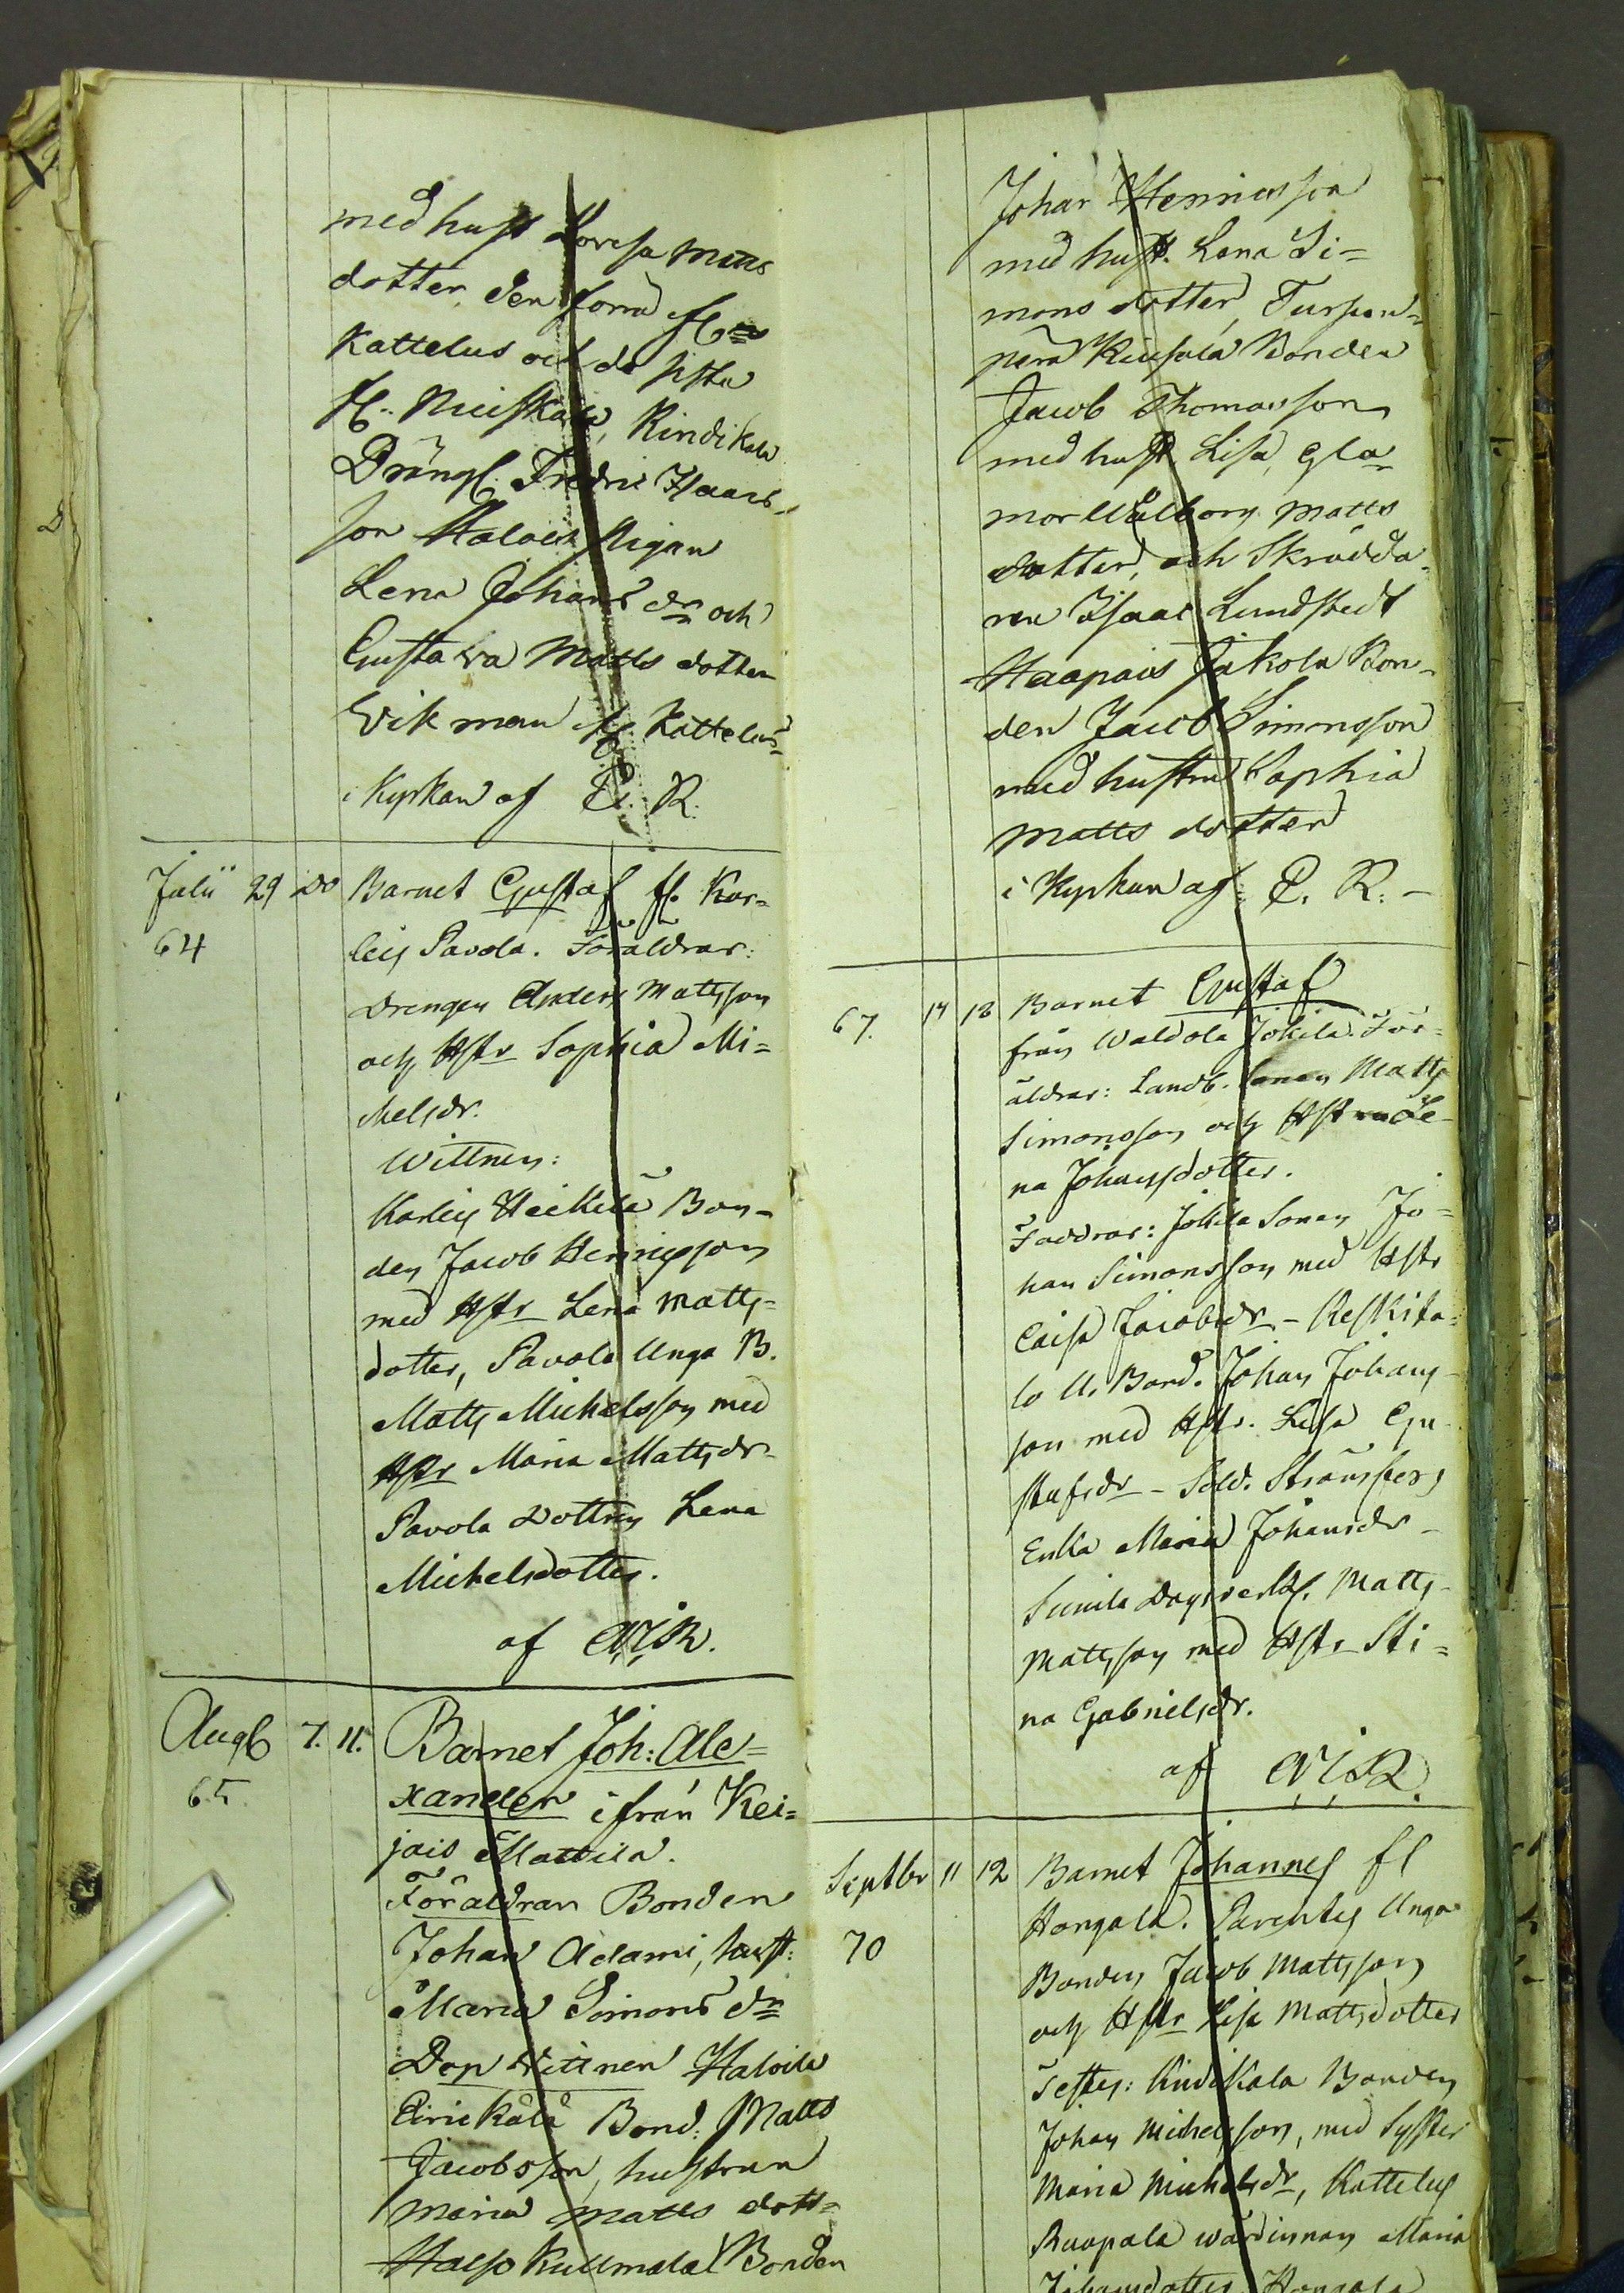 med hust Lovisa Matts
dotter, den förra fr
Kattelus och de sista
fr. Muiskala, Kindikala
Drängl. Fredric Isaacs-
son Halois Pigan
Lena Johans dr och
Gustava Matts dotter
Wikman fr. Kattelus
i Kyrkan af E. R.
Julii 29 do Barnet Gustaf fr. Kar=
64 leis Pavola. Föräldrar:
Drengen Anders Mattsson
och Hstr Sophia Mi=
chelsdr.
Wittnen:
Karleis Heickilä Bon-
den Jacob Henricsson
med Hstr Lena Matts=
dotter, Pavola Unga B.
Matts Michelsson med
Hstr Maria Mattsdr
Pavola Dottren Lena
Michelsdotter.
af
Aug 7. 11. Barnet Joh: Ale=
65 xander ifrån Kei=
jais Mattila.
Föräldrar Bonden
Johan Adami, hust:
Maria Simons dr
Dop Wittnen Haloila
Bond: Matts
Jacobsson, hustrun
Maria Matts dott=
Kullmala Bonden
Johan Henricsson
med hust. Lena Si=
mons dotter,
Bonden
Jacob Thomasson
med hust Lisa, gla
mor Walborg Matts
dotter, och Skrädda-
ren Isaac Lundstedt
Haapais Jakola Bon-
den Jacob Simonsson
med hustru Sophia
Matts dotter
i Kyrkan af: E. R. -
67. 17 18 Barnet Gustaf
från Waldola Jokila. För-
äldrar: Landb. Sonen Matts
Simonsson och Hstru Le-
na Johansdotter.
Faddrar: Jokila Sonen Jo=
han Simonsson med Hstr
Caisa Jacobsdr - Keskita=
lo U. Bond. Johan Johans-
son med Hstr. Lisa Gu-
stafsdr - Sold.
Enka Maria Johansdr -
Sunila Dagsverksk. Matts
Mattsson med Hstr Sti=
na Gabrielsdr.
af
Septbr 11 12 Barnet Johannes fr
70 Hongola. Parentes Unga
Bonden Jacob Mattsson
och Hstr Lisa Mattsdotter
Testes: Kindikala Bonden
Johan Michelsson, med Syster
Maria Michelsdr, Kattelus
Ruopala wärdinnan Maria
Johansdotter, Hongola